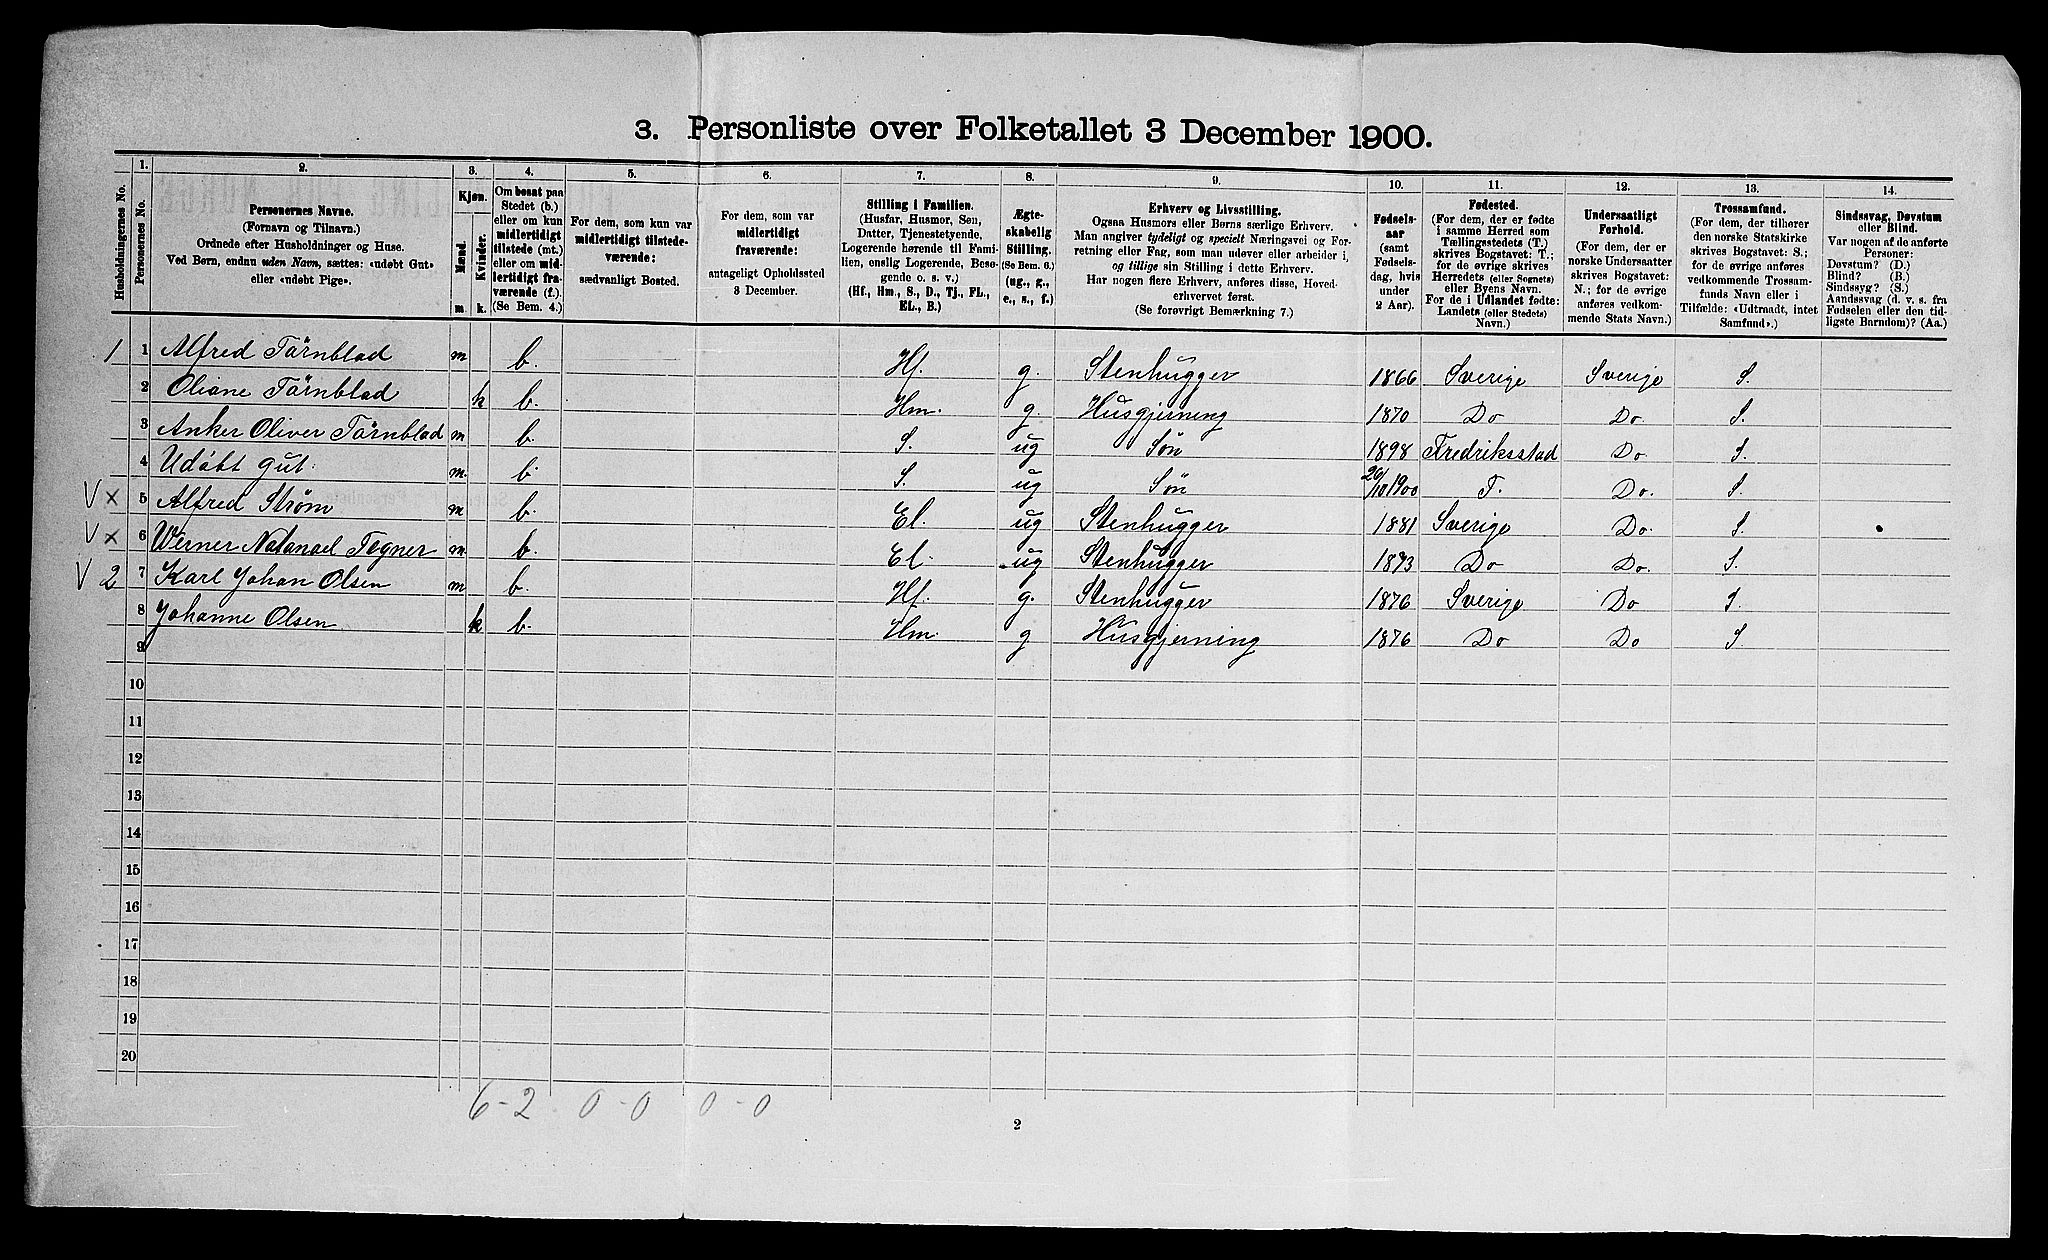 3. Personliste over Folketallet 3 December 1900.
Husholdningernes No.
1. Personernes No.
2. Personernes Navne.
(Fornavn og Tilnavn.)
Ordnede efter Husholdninger og Huse.
Ved Børn, endnu uden Navn, sættes: «udøbt Gut»
eller «udøbt Pige».
3. Kjøn.
Mænd. m.
Kvinder. k.
4. Om bosat paa
Stedet (b.)
eller om kun
midlertidigt
tilstede (mt.)
eller om mid-
lertidigt fra-
værende (f.)
(Se Bem. 4.)
5. For dem, som kun var
midlertidigt tilstede-
værende:
sædvanligt Bosted.
6. For dem, som var
midlertidigt
fraværende:
antageligt Opholdssted
3 December.
7. Stilling i Familien.
(Husfar, Husmor, Søn,
Datter, Tjenestetyende,
Logerende hørende til Fami-
lien, enslig Logerende, Besø-
gende o. s. v.)
(Hf., Hm., S., D., Tj., FL.,
EL., B.)
8. Ægte-
skabelig
Stilling.
(Se Bem. 6.)
(ug., g.,
e., s., f.)
9. Erhverv og Livsstilling.
Ogsaa Husmors eller Børns særlige Erhverv.
Man angiver tydeligt og specielt Næringsvei og For-
retning eller Fag, som man udøver eller arbeider i,
og tillige sin Stilling i dette Erhverv.
Har nogen flere Erhverv, anføres disse, Hoved-
erhvervet først.
(Se forøvrigt Bemærkning 7.)
10. Fødsels-
aar
(samt
Fødsels-
dag, hvis
under
2 Aar).
11. Fødested.
(For dem, der er fødte
i samme Herred som
Tællingsstedets (T.)
skrives Bogstavet: T.;
for de øvrige skrives
Herredets (eller Sognets)
eller Byens Navn.
For de i Udlandet fødte:
Landets (eller Stedets)
Navn.)
12. Undersaatligt
Forhold.
(For dem, der er
norske Undersaatter
skrives Bogstavet:
N.; for de øvrige
anføres vedkom-
mende Stats Navn.)
13. Trossamfund.
(For dem, der tilhører
den norske Statskirke
skrives Bogstavet: S.;
for de øvrige anføres
vedkommende Trossam-
funds Navn eller i
Tilfælde: «Udtraadt, intet
Samfund».)
14. Sindssvag, Døvstum
eller Blind.
Var nogen af de anførte
Personer:
Døvstum? (D.)
Blind? (B.)
Sindssyg? (S.)
Aandssvag (d. v. s. fra
Fødselen eller den tid-
ligste Barndom)? (Aa.)
1 1 Alfred Törnblad m b. Hf. g. Stenhugger 1866 Sverige Sverige S.
2 Oliane Törnblad k b. Hm. g. Husgjerning 1870 Do Do. S.
3 Anker Oliver Törnblad m b. S. ug Søn 1898 Fredriksstad Do. S.
4 Udöbt gut. m. b. S. ug Søn 26/10 1900 T. Do. S.
V x 5 Alfred Strøm m b. El. ug Stenhugger 1881 Sverige Do. S.
V x 6 Werner Natanael Tegner m. b. El. ug Stenhugger 1873 Do Do. S.
V 2 7 Karl Johan Olsen m b. Hf. g. Stenhugger 1876 Sverige Do S.
8 Johanne Olsen k b. Hm. g Husgjerning 1876 Do Do S.
9
10
11
12
13
14
15
16
17
18
19
20
6-2 0-0 0-0
2